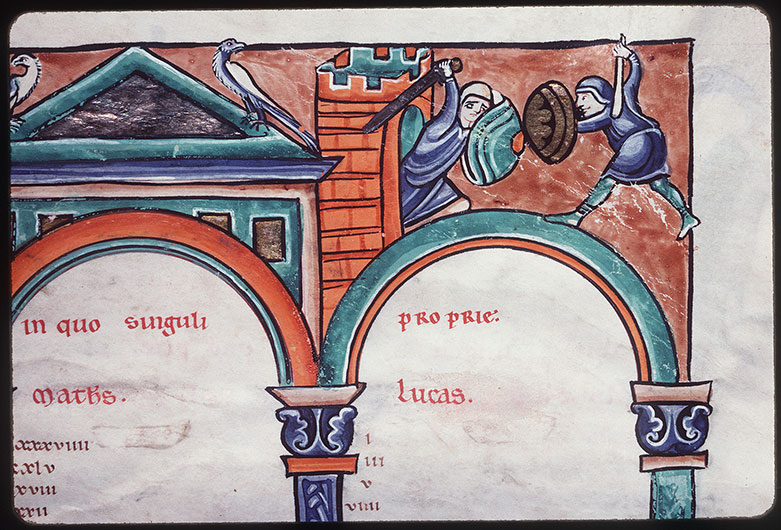 in quo singuli proprie:
Maths. Lucas.
xxxviiii i
xxlv iii
xviii v
xxii viiii